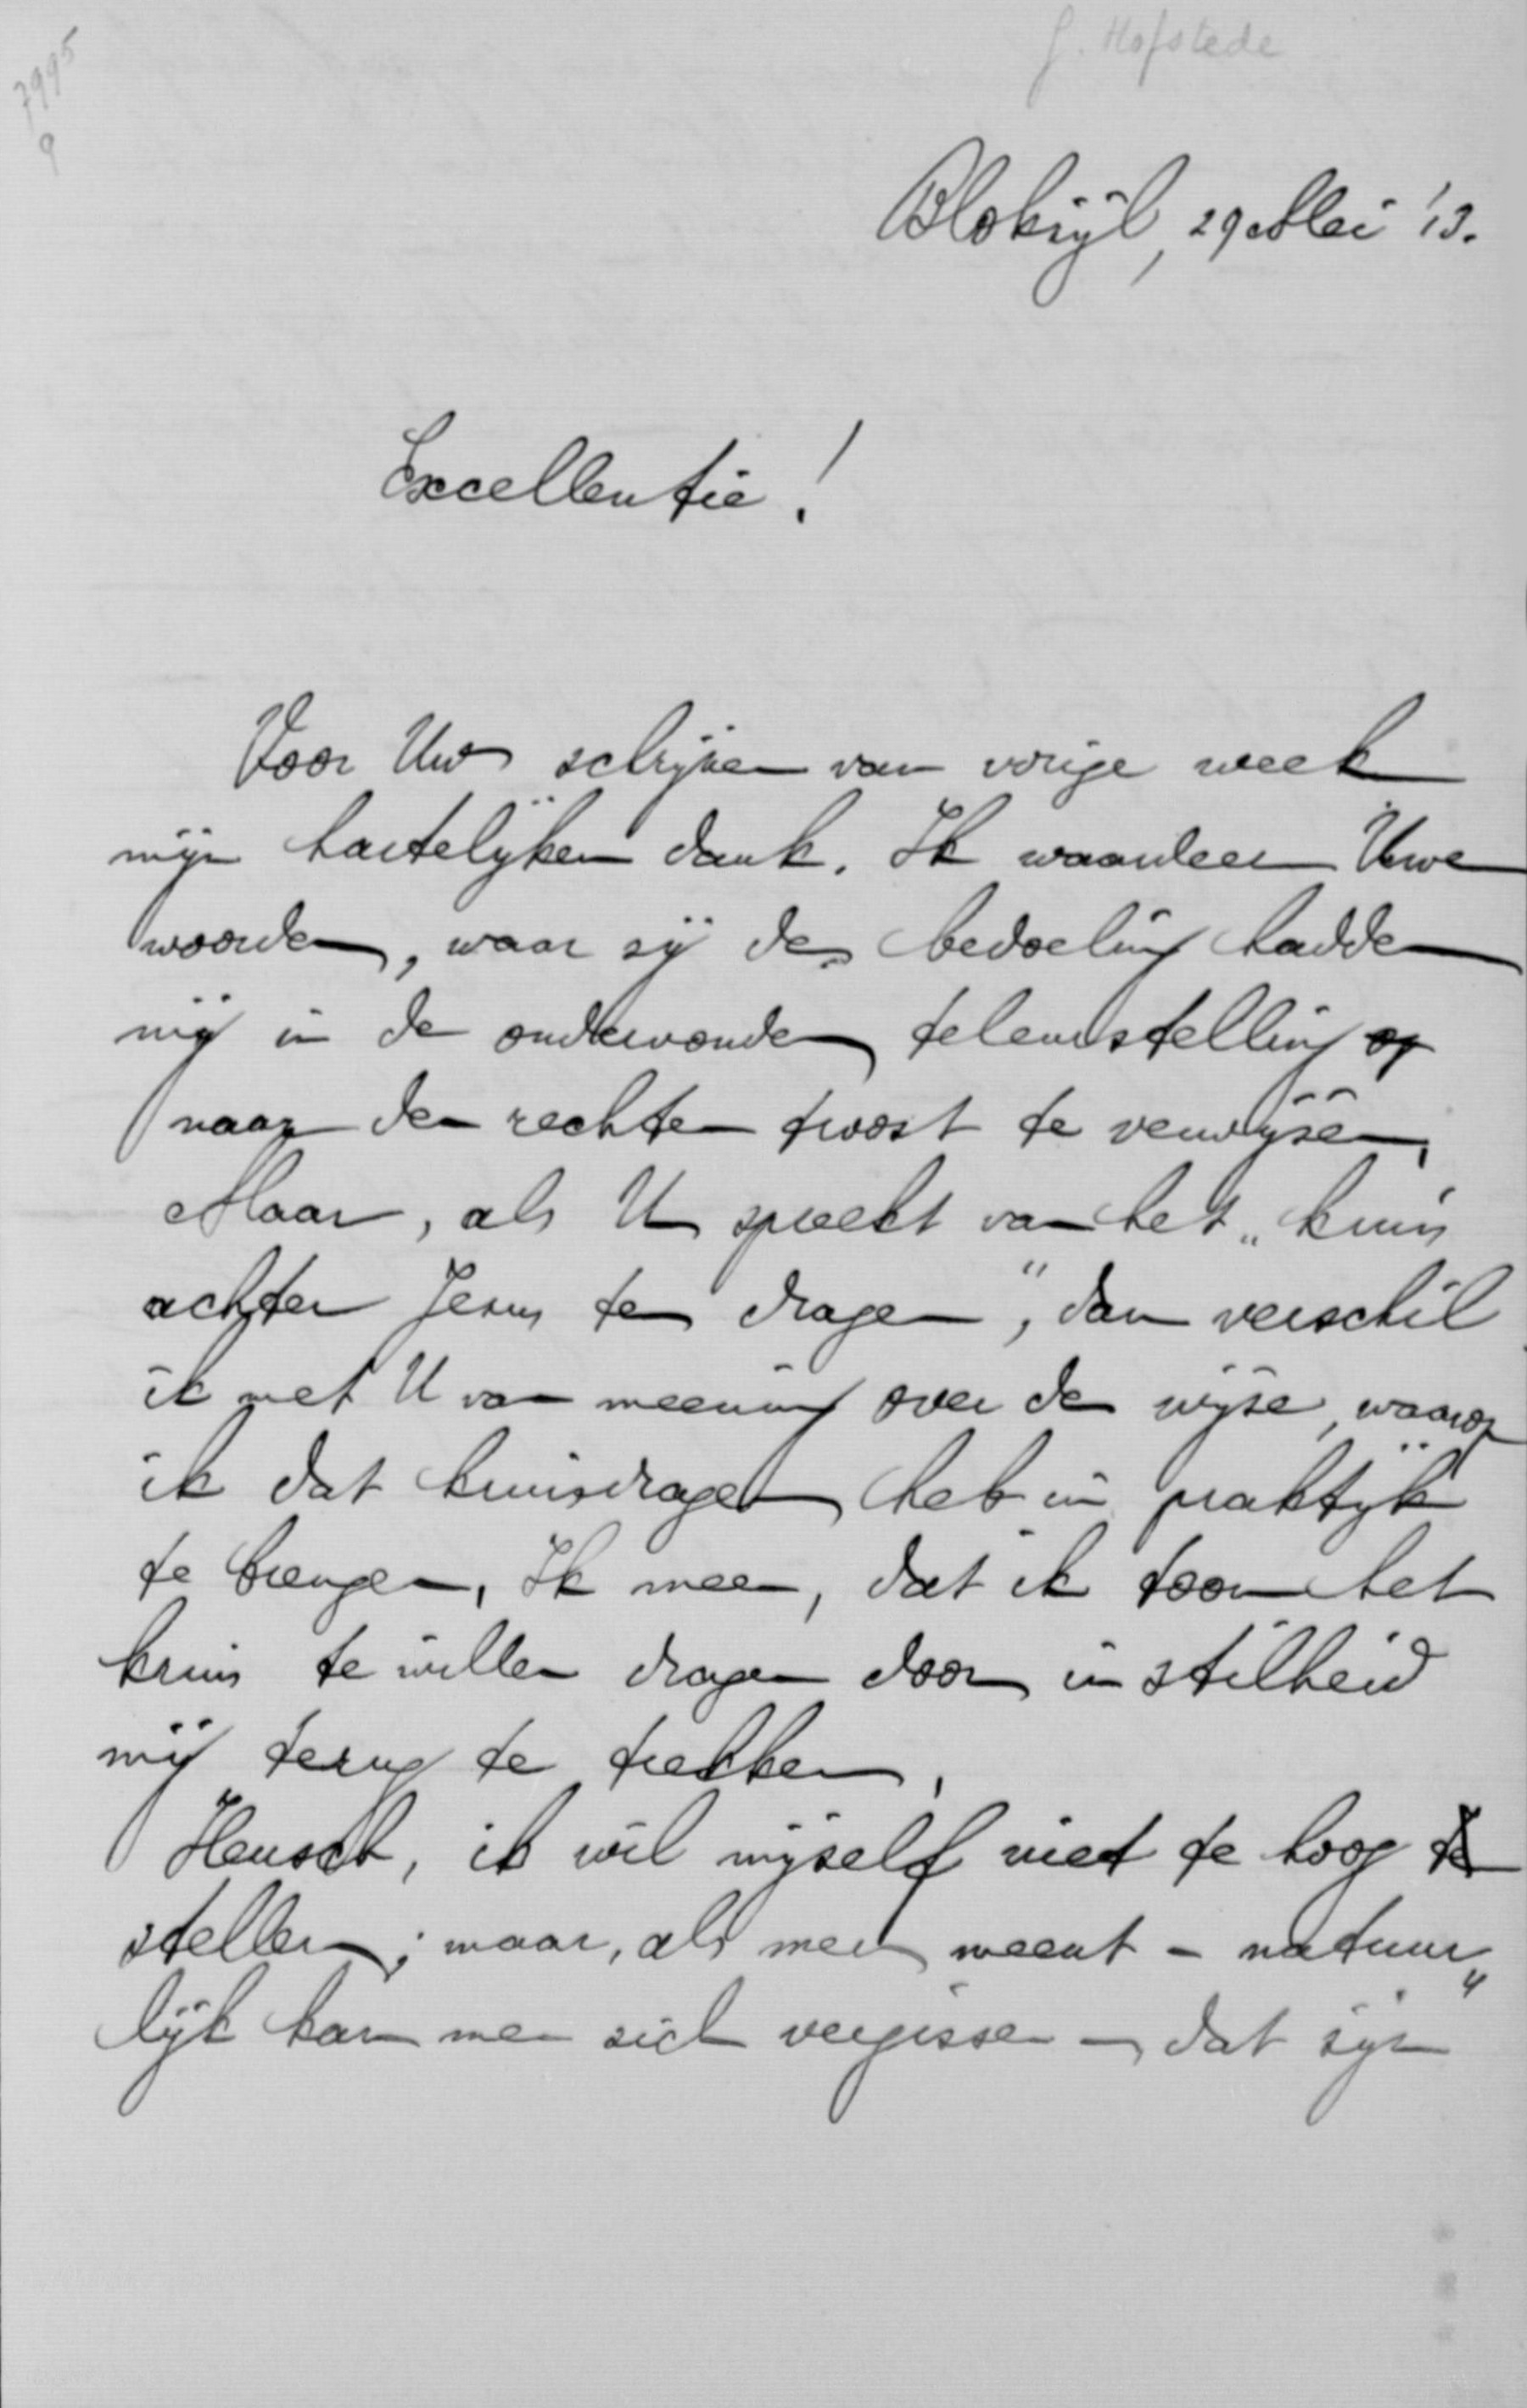 7995
9
G. Hofstede
Blokzijl, 29 Mei '13.
Excellentie!
Voor Uw schrijven van vorige week
mijn hartelijken dank. Ik waardeer Uwe
woorden, waar zij de bedoeling hadden
mij in de ondervonden teleurstelling op
naar den rechten troost te verwijzen.
Maar, als U spreekt van het "kruis
achter Jezus te dragen", dan verschil
ik met U van meening over de wijze, waarop
ik dat kruisdragen heb in praktijk
te brengen. Ik meen, dat ik toon het
kruis te willen dragen door in stilheid
mij terug te trekken.
Heusch, ik wil mijzelf niet te hoog te
stellen; maar, als men meent - natuur„
lijk kan men zich vergissen - dat zijn